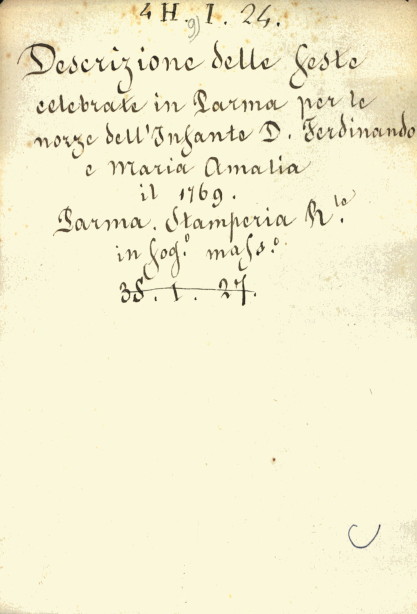 4 H. I. 24.
9)
Descrizione delle feste
celebrate in Parma per le
nozze dell'Infante D. Ferdinando
e Maria Amalia
il 1769.
Parma. Stamperia R.le
in fog.o mass.o
35. 1. 27.